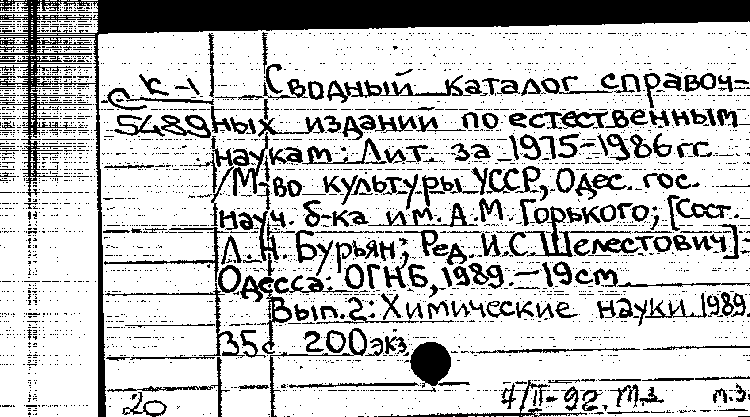 К-1
5489
Сводный каталог справоч-
ных изданий по естественным
наукам: Лит. за 1975-1986 гг.
/М-во культуры УССР, Одес. гос.
науч. б-ка им. А.М. Горького; [Сост.
Л.Н. Бурьян; Ред. И.С. Шелестович].-
Одесса: ОГНБ, 1989.-19cm.
Вып.2: Химические науки. 1989.
35с. 200 экз
4/II-92.
20